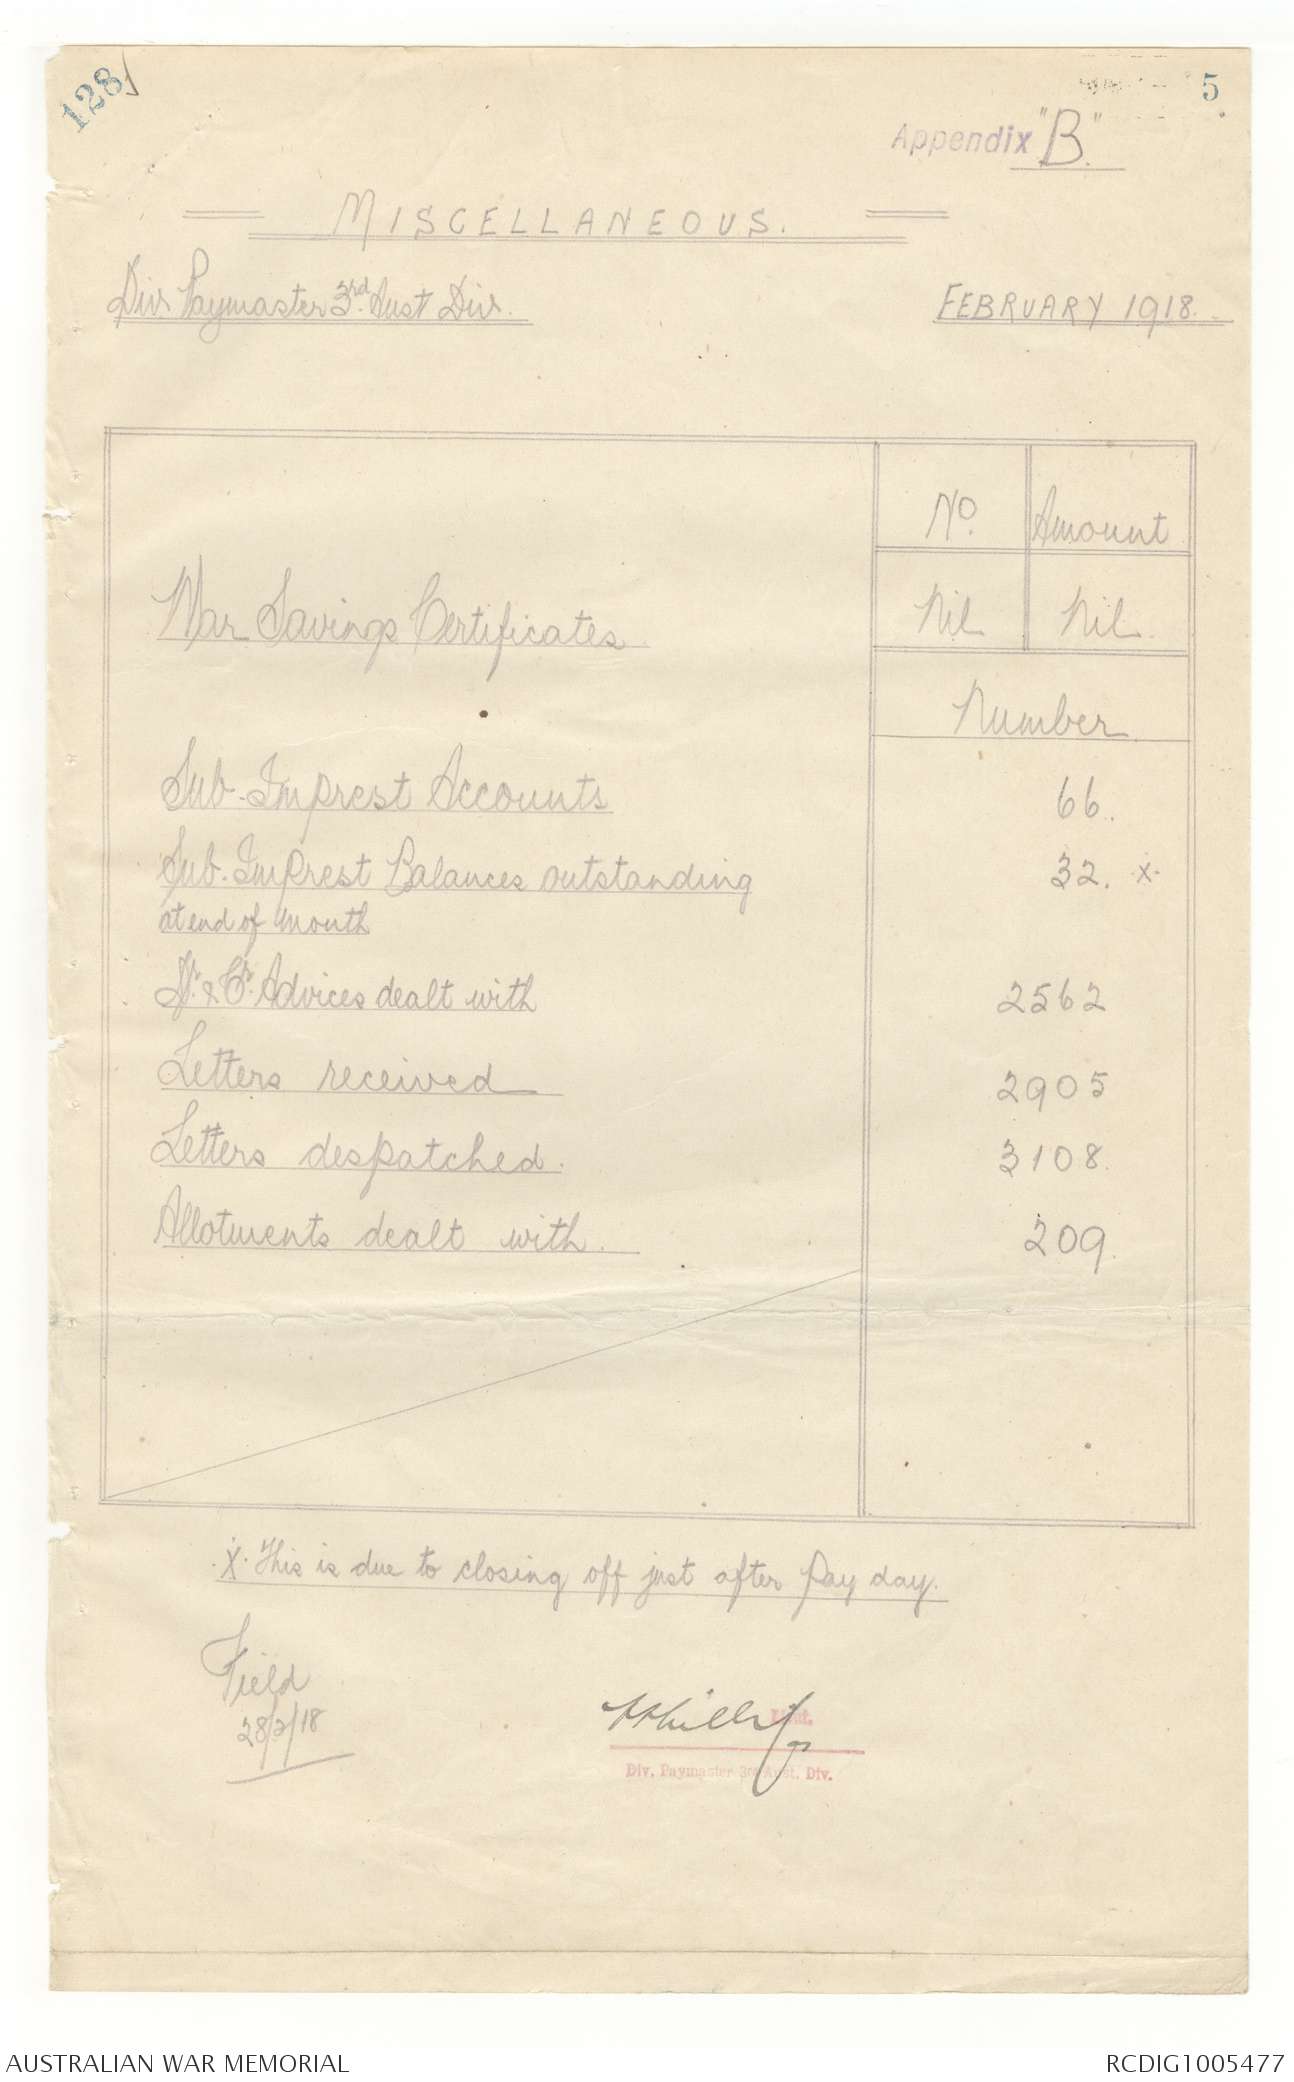 128
5
Appendix "B."
MISCELLANEOUS.
Div Paymaster 3rd. Aust Div.
FEBRUARY 1918.
No. Amount
War Savings Certificates Nil Nil.
Number
Sub-Imprest Accounts 66.
Sub-Imprest Balances outstanding 32. x.
at end of Month
Dr. & Cr. Advices dealt with 2562
Letters received 2905
Letters despatched. 3108.
Allotments dealt with. 209.
.X. This is due to closing off just after Pay day.
Field
28/2/18
Lieut.
Div. Paymaster 3rd Aust. Div.
AUSTRALIAN WAR MEMORIAL
RCDIG1005477